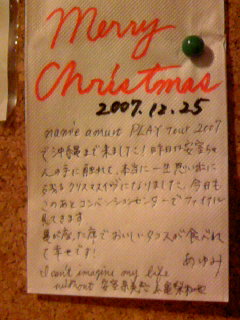 Merry
Christmas
2007.12.25
namie amuro PLAY tour 2007
で沖縄まで来ました!昨日は安室ちゃ
んの手に触れて、本当に一生思い出に
残るクリスマスイヴになりました。今日も
このあとコンベンションセンターでファイナル
見てきます
席でおいしいタコスが食べれ
て幸せです!
あゆみ
I can't imagine my life
without 安室奈美恵